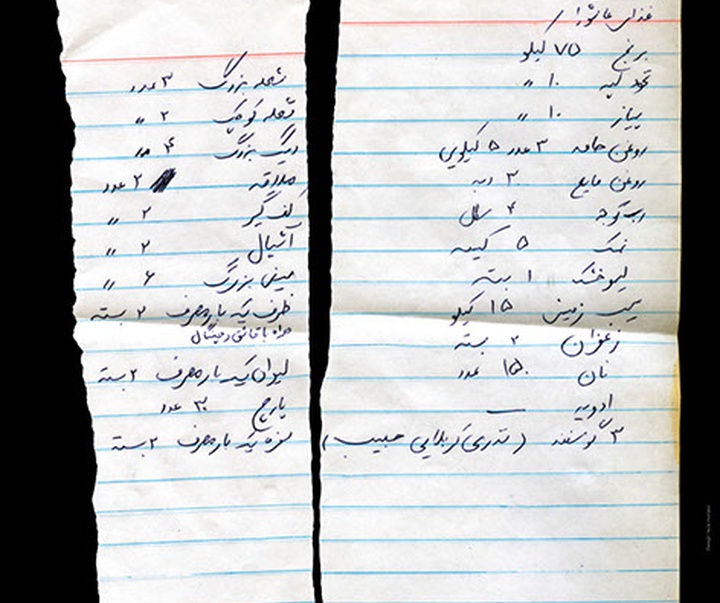 غذای عاشورا
برنج ۷۵ کیلو
نخود لپه ۱۰ "
پیاز ۱۰ "
روغن جامد ۳ عدد ۵ کیلویی
روغن مایع ۳ دبه
رب گوجه ۴
نمک ۵ کیسه
لیمو خشک ۱ بسته
سیب زمینی ۱۵ کیلو
زعفران ۲ بسته
نان ۱۵۰ عدد
ادویه —
۳ گوسفند (نذری کربلایی حبیب)
شعله بزرگ ۳ عدد
شعله کوچک ۲ "
دیگ بزرگ ۴ عدد
ملاقه ۲ عدد
کفگیر ۲ "
آشپال ۲ "
سینی بزرگ ۶ "
ظرف یکبار مصرف ۲ بسته
همراه با قاشق و چنگال
لیوان یکبار مصرف ۲ بسته
پارچ ۳۰ عدد
سفره یکبار مصرف ۲ بسته